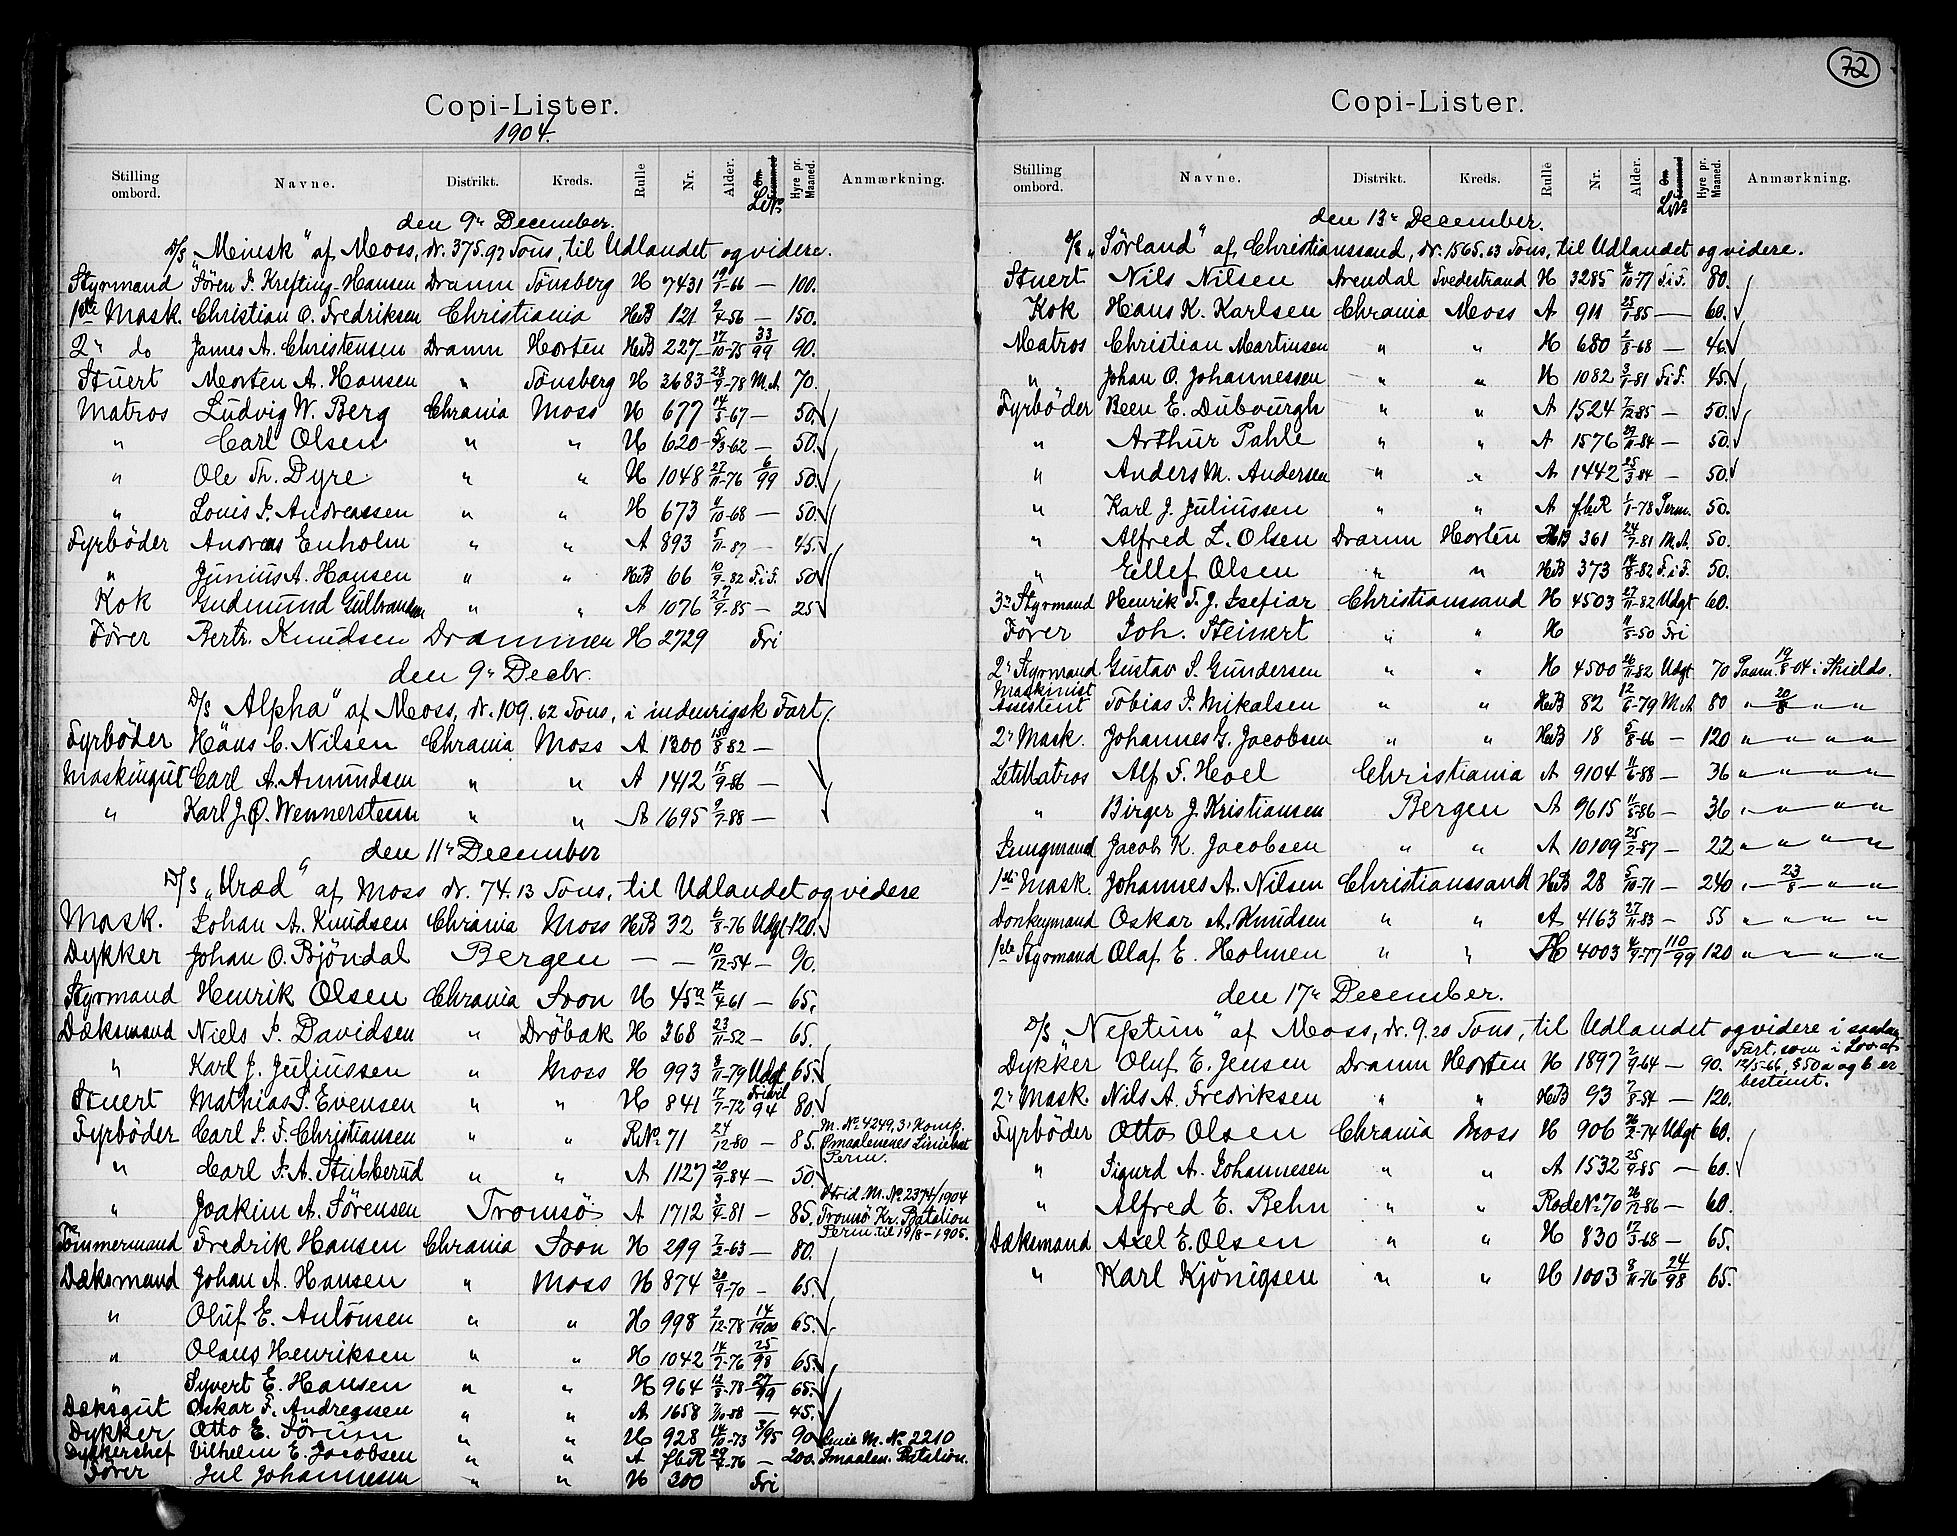 Copi-Lister.
1904.
Stilling ombord. Navne. Distrikt. Kreds. Rulle Nr. Alder. Hyre pr. Maaned. Anmærkning.
den 9' December.
D/s "Minsk" af Moss, dr. 375.92 Tons, til Udlandet og videre.
Styrmand Sören P. Krefting-Hansen Dramn Tönsberg H 7431 19/1-66 — 100.
1ste Mask. Christian O. Fredriksen Christiania HB 121 9/4-56 — 150.
2' do James A. Christensen Dramn Horten HB 227 17/10-75 33/99 90.
Stuert Morten A. Hansen " Tönsberg H 3683 28/9-78 M.A. 70.
Matros Ludvig W. Berg Chrania Moss H 677 14/5-67 — 50.
" Carl Olsen " " H 620 5/3-62 — 50.
" Ole Th. Dyre " " H 1048 27/11-76 6/99 50.
" Louis P. Andreassen " " H 673 4/10-68 — 50.
Fyrböder Andreas Enholm " " A 893 5/11-87 — 45.
" Junius A. Hansen " " HB 66 10/9-82 F.i.F. 50
Kok Gudmund Gulbrandsen " " A 1076 27/9-85 — 25
Förer Bertr. Knudsen Drammen H 2729 Fri
den 9' Decbr.
D/s "Alpha" af Moss, dr. 109.62 Tons, i indenrigsk Fart.
Fyrböder Hans C. Nilsen Chrania Moss A 1300 /8-82 —
Maskingut Carl A. Amundsen " " A 1412 15/9-86 —
" Karl J. O. Wennersteen " " A 1695 9/7-88 —
den 11' December
D/s "Uræd" af Moss dr. 74.13 Tons, til Udlandet og videre
Mask. Johan A. Knudsen Chrania Moss HB 32 6/8-76 Udgt 120.
Dykker Johan O. Bjöndal Bergen — — 10/12-54 — 90.
Styrmand Henrik Olsen Chrania Soon H 45a 12/4-61 — 65.
Dæksmand Niels P. Davidsen " Dröbak H 368 23/11-52 — 65.
" Karl J. Juliussen " Moss H 993 8/11-79 Udgt 65.
Stuert Mathias P. Evensen " " H 841 17/7-72 Frivil 94 80.
Fyrböder Carl P. F. Christiansen " " R.No. 71 24/12-80 — 85. M. No. 4249, 3' Komp. Smaalenenes Liniebat Perm.
" Carl P. A. Stubberud " " A 1127 20/9-84 — 50.
" Joakim A. Sörensen Tromsö A 1712 3/4-81 — 85. Strid. M. No. 2374/1904 Tromsö Kr. Batalion Perm. til 19/8-1905.
Tömmermand Fredrik Hansen Chrania Soon H 299 7/2-63 — 80.
Dæksmand Johan A. Hansen " Moss H 874 30/9-70 — 65.
" Oluf E. Antonsen " " H 998 2/12-78 14/1900 65.
" Olaus Henriksen " " H 1042 14/7-76 25/98 65.
" Syvert E. Hansen " " H 964 12/8-78 27/99 65.
Dæksgut Oskar F. Andreassen " " A 1658 7/10-88 — 45.
Dykker Otto E. Sörum " " H 928 14/10-73 3/95 90 Linie M. No. 2210
Dykkerchef Vilhelm E. Jacobsen " " A f.b.R 29/4-76 — 200. Smaalen. Batalion.
Förer Jul Johannesen " " H 300 Fri
72
Copi-Lister.
Stilling ombord. Navne. Distrikt. Kreds. Rulle Nr. Alder. Hyre pr. Maaned. Anmærkning.
den 13' December.
D/s "Sörland" af Christianssand, dr. 1565.63 Tons, til Udlandet og videre.
Stuert Nils Nilsen Arendal Tvedestrand H 3285 4/10-77 F.i.F. 80.
Kok Hans K. Karlsen Chrania Moss A 911 25/1-85 — 60.
Matros Christian Martinsen " " H 680 2/8-68 — 46.
" Johan O. Johannessen " " H 1082 3/1-81 F.i.F. 45.
Fyrböder Been E. Dubourgh " " A 1524 7/12-85 — 50.
" Arthur Pahle " " A 1576 29/11-84 — 50.
" Anders M. Andersen " " A 1442 25/3-84 — 50.
" Karl J. Juliussen " " A f.b.R 1/1-78 Perm. 50.
" Alfred L. Olsen Dramn Horten HB 361 24/7-81 M.A. 50.
" Eilef Olsen " " HB 373 14/8-82 F.i.F. 50.
3' Styrmand Henrik F. J. Isefiær Christianssand H 4503 27/11-82 Udgt 60.
Förer Joh. Steinert " " H 11/5-50 Fri
2' Styrmand Gustav S. Gundersen " " H 4500 26/11-82 Udgt 70 Paam. 19/8-04 i Shields.
Maskinist Assistent Tobias P. Mikalsen " " HB 82 12/6-79 M.A 80 " 20/8 " "
2' Mask. Johannes G. Jacobsen " " HB 18 5/8-66 — 120 " " " "
LetMatros Alf F. Hoel Christiania A 9104 11/6-88 — 36 " " " "
" Birger J. Kristiansen Bergen A 9615 11/5-86 — 36 " " " "
Jungmand Jacob K. Jacobsen " " A 10109 25/2-87 — 22 " " " "
1ste Mask. Johannes A. Nilsen Christianssand HB 28 5/10-71 — 240 " 23/8 " "
Donkeymand Oskar A. Knudsen " " A 4163 27/11-83 — 55 " " " "
1ste Styrmand Olaf E. Holmen " " H 4003 4/9-77 110/99 120 " " " "
den 17' December.
D/s "Neptun" af Moss, dr. 9.20 Tons, til Udlandet og videre i saadan
Fart, som i Lov af 12/5-66, § 50 a og b er bestemt.
Dykker Oluf E. Jensen Dramn Horten H 1897 2/9-64 — 90.
2' Mask. Nils A. Fredriksen " " HB 93 7/8-54 — 120.
Fyrböder Otto Olsen Chrania Moss H 906 26/2-74 Udgt 60.
" Sigurd A. Johannesen " " A 1532 25/9-85 — 60.
" Alfred E. Behn " " Rode No. 70 26/12-86 — 60.
Dæksmand Axel E. Olsen " " H 830 17/3-68 — 65.
" Karl Kjönigsen " " H 1003 8/11-76 24/98 65.